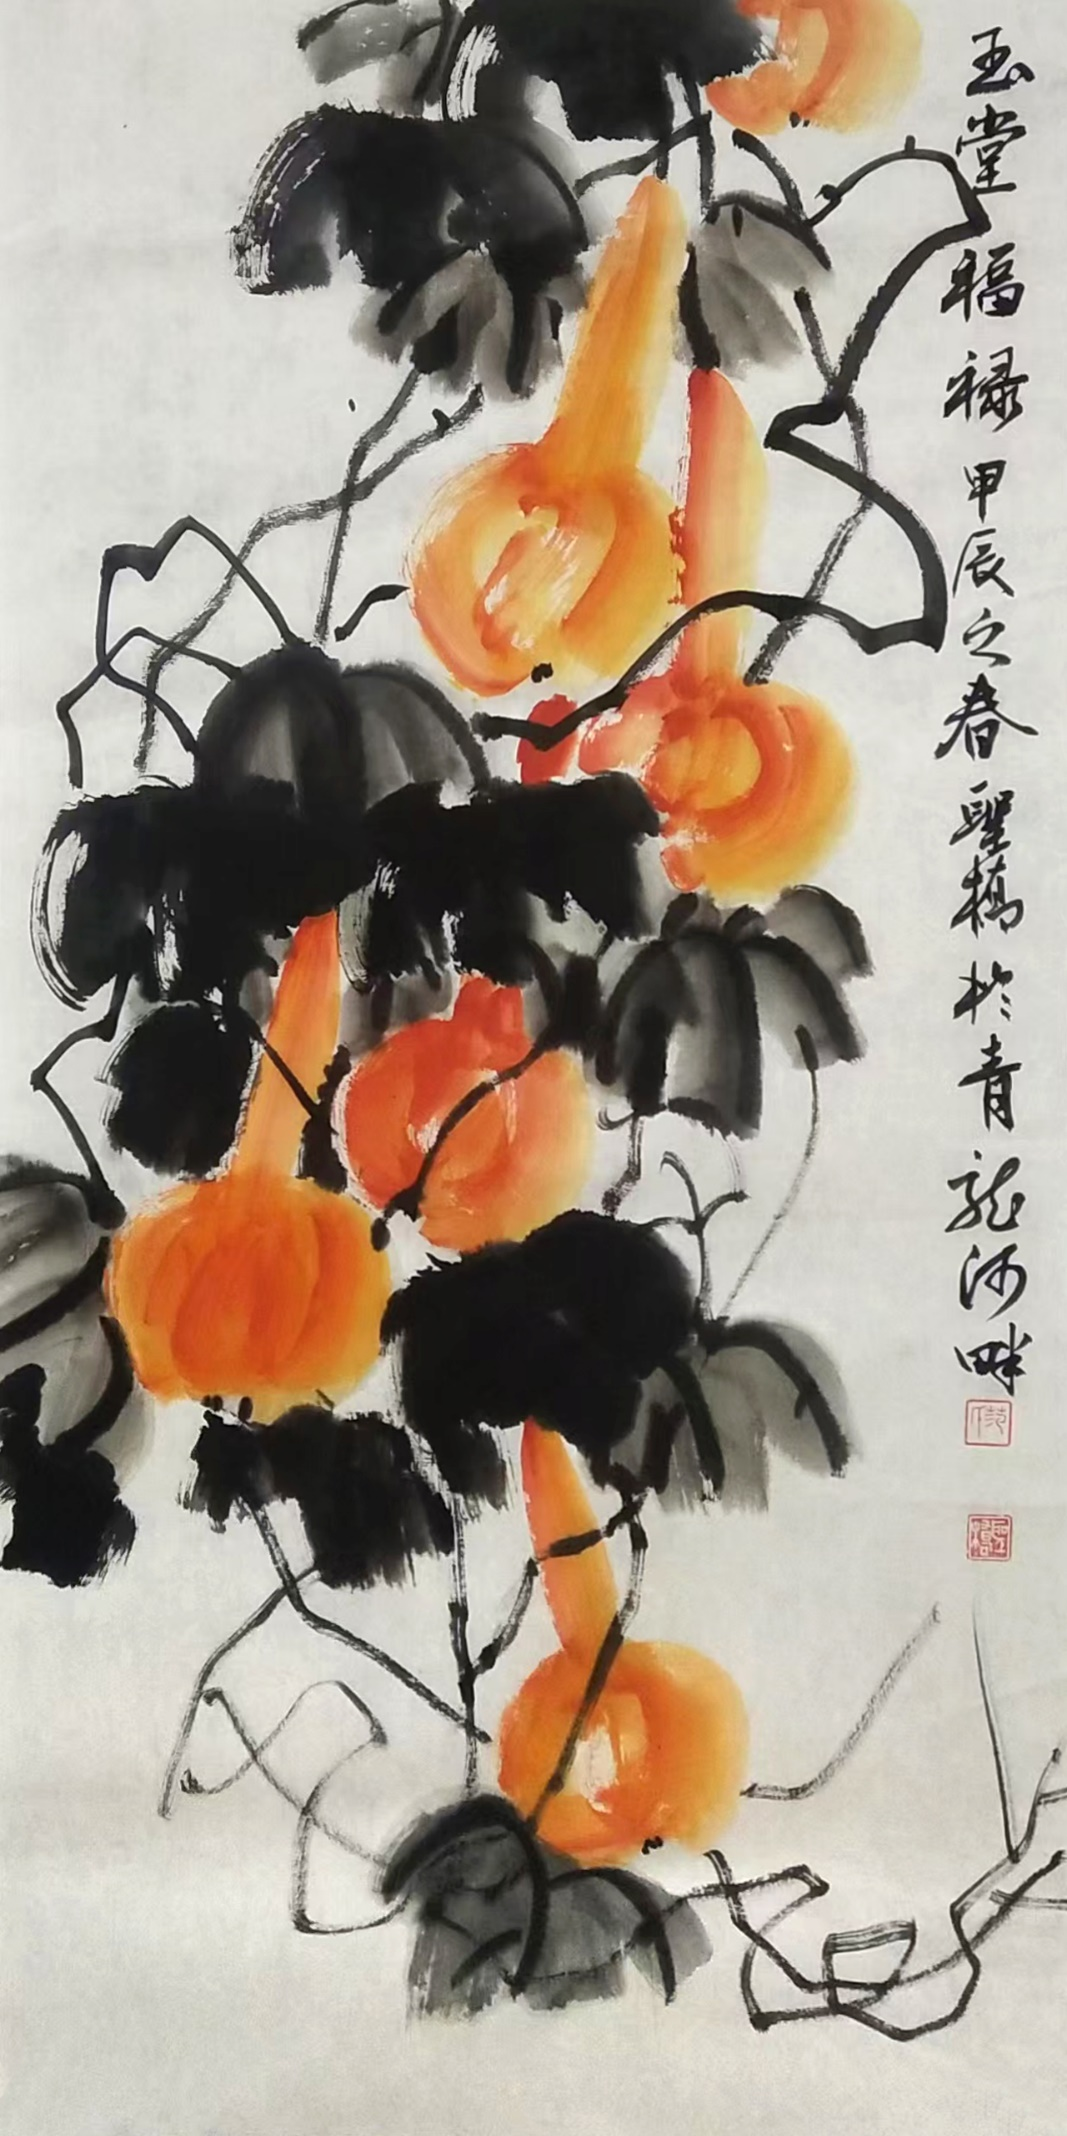 玉堂福禄甲辰之春聖橋於青龙河畔